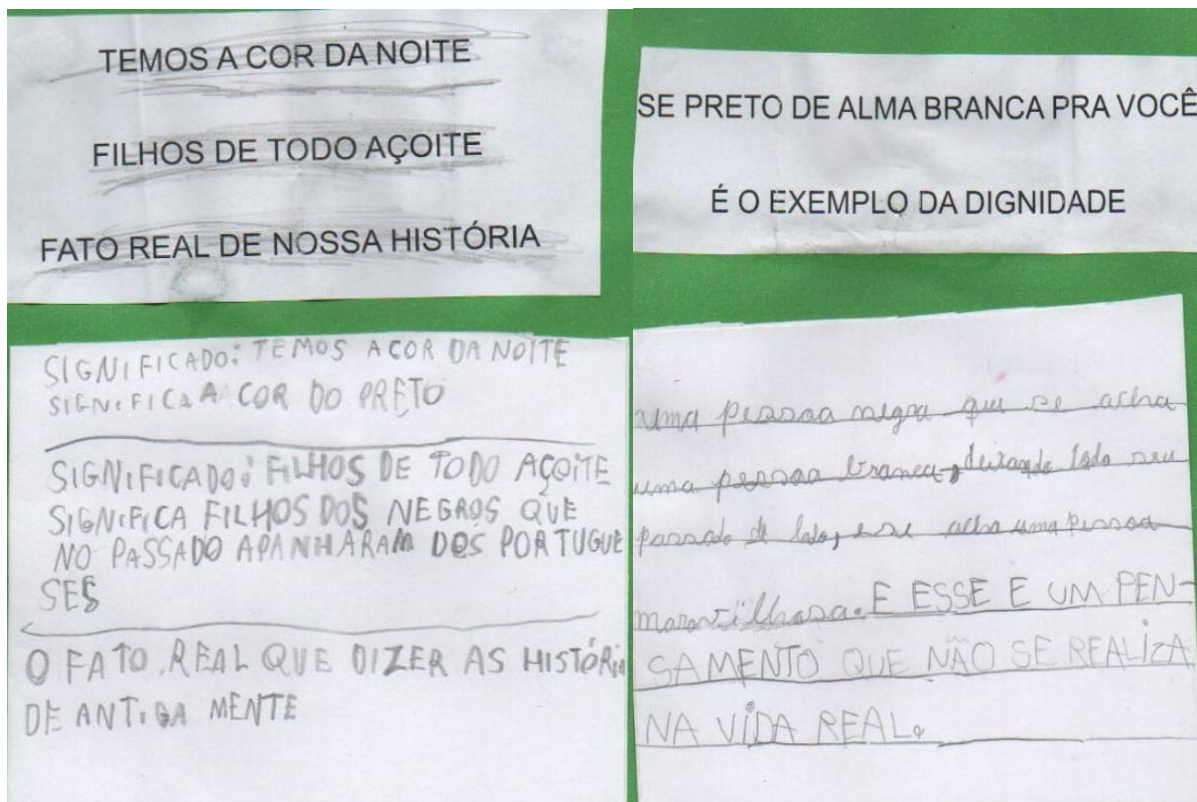 TEMOS A COR DA NOITE
FILHOS DE TODO AÇOITE
FATO REAL DE NOSSA HISTÓRIA
SIGNIFICADO: TEMOS A COR DA NOITE
SIGNIFICA A COR DO PRETO
SIGNIFICADO: FILHOS DE TODO AÇOITE
SIGNIFICA FILHOS DOS NEGROS QUE
NO PASSADO APANHARAM DOS PORTUGUE
SES
O FATO REAL QUE DIZER AS HISTÓRIA
DE ANTIGA MENTE
SE PRETO DE ALMA BRANCA PRA VOCÊ
É O EXEMPLO DA DIGNIDADE
uma pessoa negra que se acha
uma pessoa branca, deixando todo seu
passado de lado, e se acha uma pessoa
maravilhosa. E ESSE E UM PEN-
SAMENTO QUE NÃO SE REALIZA
NA VIDA REAL.